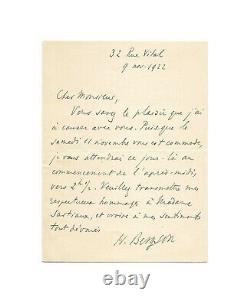 32 Rue Vital
9 nov. 1922
Cher Monsieur,
Vous savez le plaisir que j'ai
à causer avec vous. Puisque le
samedi 11 novembre vous est commode,
je vous attendrai ce jour-là au
commencement de l'après-midi,
vers 2h ½. Veuillez transmettre mes
respectueux hommages à Madame
Sartiaux, et croire à mes sentiments
tout dévoués
H. Bergson
ebay.com